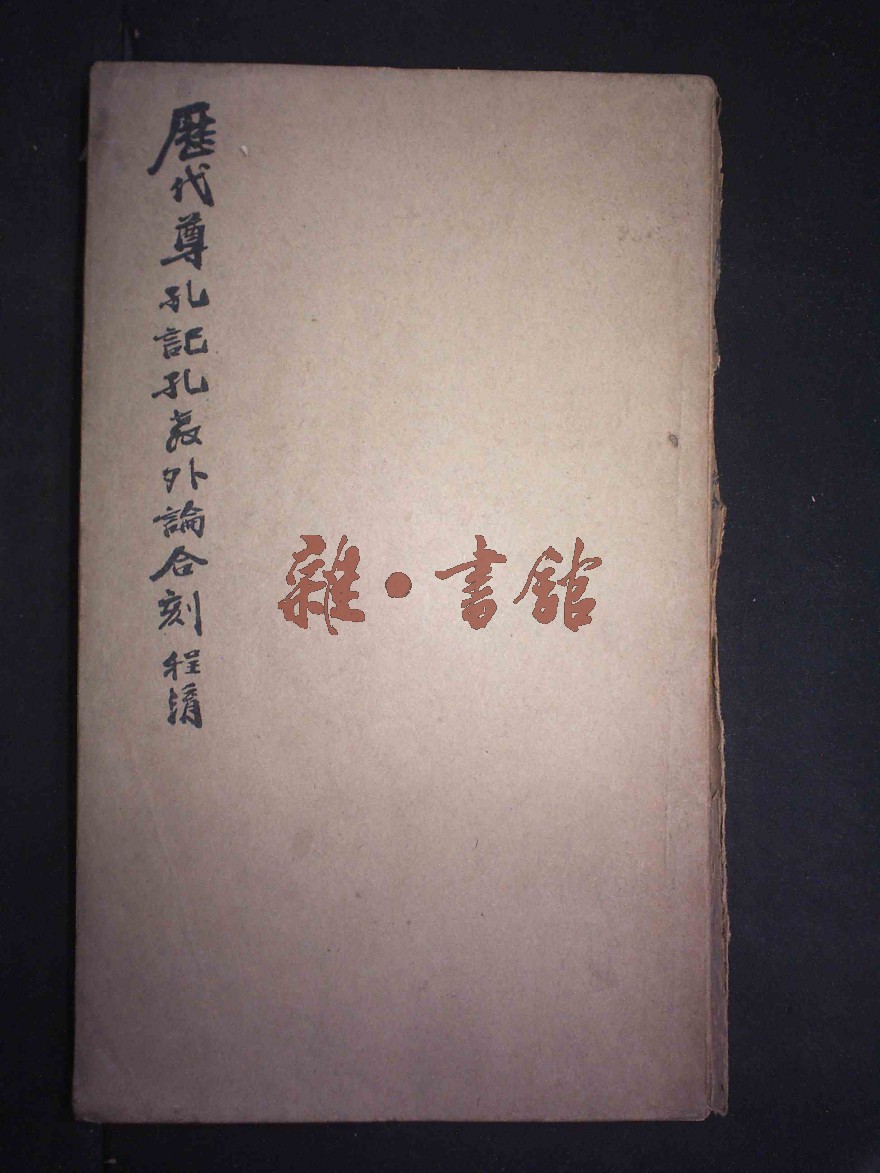 歷代尊孔記孔教外論合刻 程淯
雜·書館